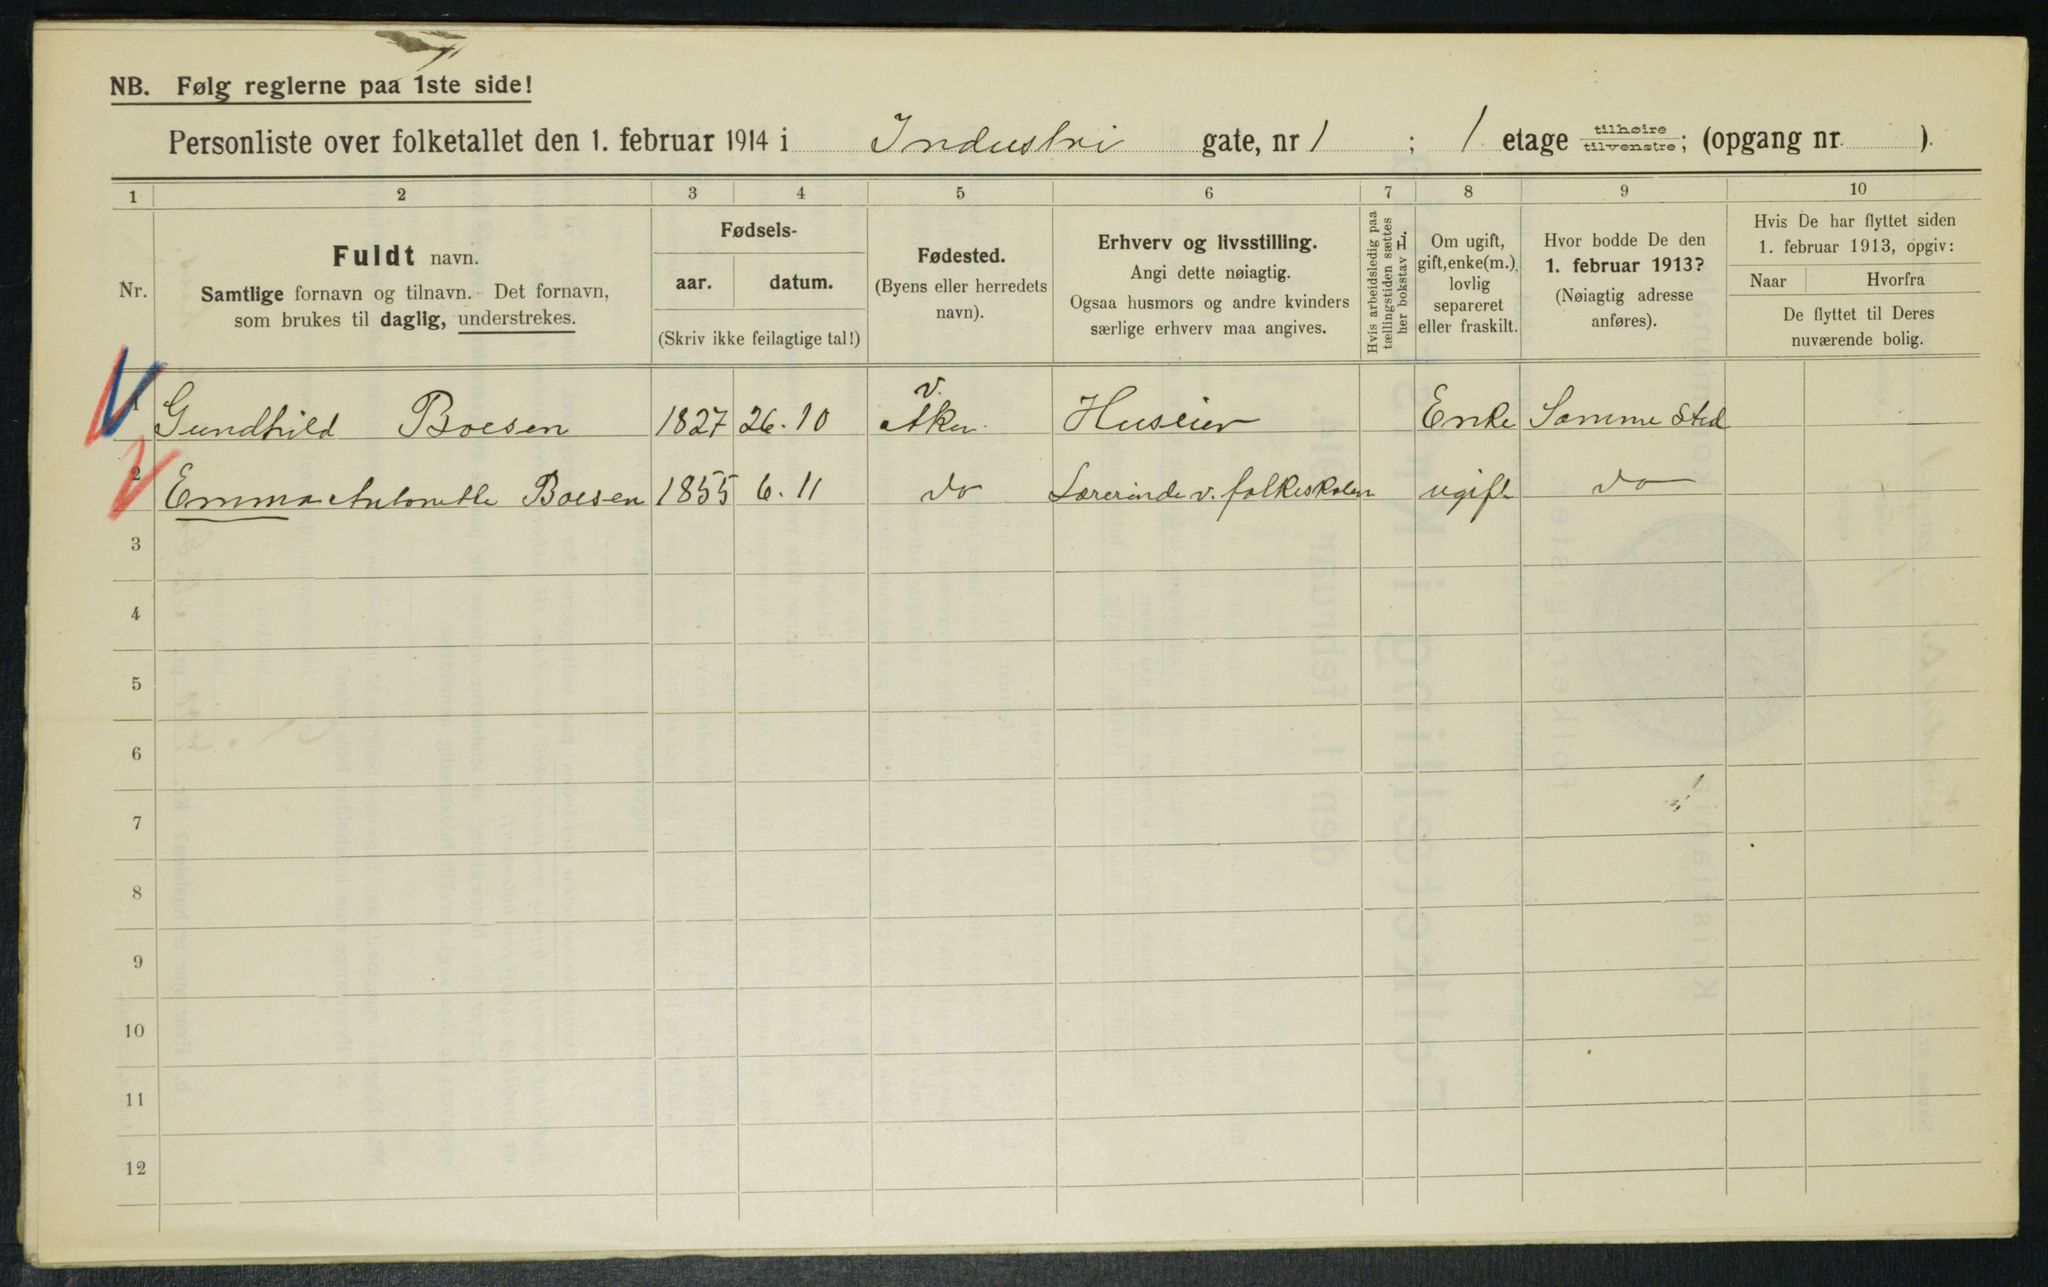 NB. Følg reglerne paa 1ste side!
Personliste over folketallet den 1. februar 1914 i Industri gate, nr 1 ; 1 etage tilhøire tilvenstre; (opgang nr. ).
1 2 3 4 5 6 7 8 9 10
Nr.
Fuldt navn.
Samtlige fornavn og tilnavn. Det fornavn,
som brukes til daglig, understrekes.
Fødsels-
aar. datum.
(Skriv ikke feilagtige tal!)
Fødested.
(Byens eller herredets
navn).
Erhverv og livsstilling.
Angi dette nøiagtig.
Ogsaa husmors og andre kvinders
særlige erhverv maa angives.
Hvis arbeidsledig paa
tællingstiden sættes
her bokstav L.
Om ugift,
gift, enke(m.),
lovlig
separeret
eller fraskilt.
Hvor bodde De den
1. februar 1913?
(Nøiagtig adresse
anføres).
Hvis De har flyttet siden
1. februar 1913, opgiv:
Naar Hvorfra
De flyttet til Deres
nuværende bolig.
1 Gundhild Boesen 1827 26.10 v. Aker Huseier Enke Samme Sted
2 Emma Antonette Boesen 1855 6.11 do Lærerinde v. folkeskolen ugift do
3
4
5
6
7
8
9
10
11
12